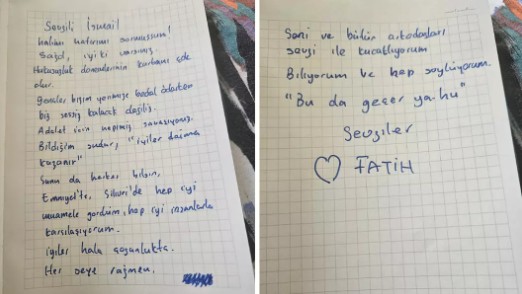 Sevgili İsmail
halimi hatırımı sormuşsun!
Sağol, iyi ki varsınız.
Hukuksuzluk dönemlerinin kurbanı çok
olur.
Gençler bizim yerimize bedel öderken
biz sessiz kalacak değiliz.
Adalet için hepimiz savaşıyoruz.
Bildiğim şudur, "iyiler daima
kazanır"
Şunu da herkes bilsin,
Emniyet'te, Silivri'de hep iyi
muamele gördüm, hep iyi insanlarla
karşılaşıyorum.
iyiler hala çoğunlukta.
Her şeye rağmen.
Seni ve bütün arkadaşları
sevgi ile kucaklıyorum
Biliyorum ve hep söylüyorum
"Bu da geçer ya hu"
Sevgiler
FATİH